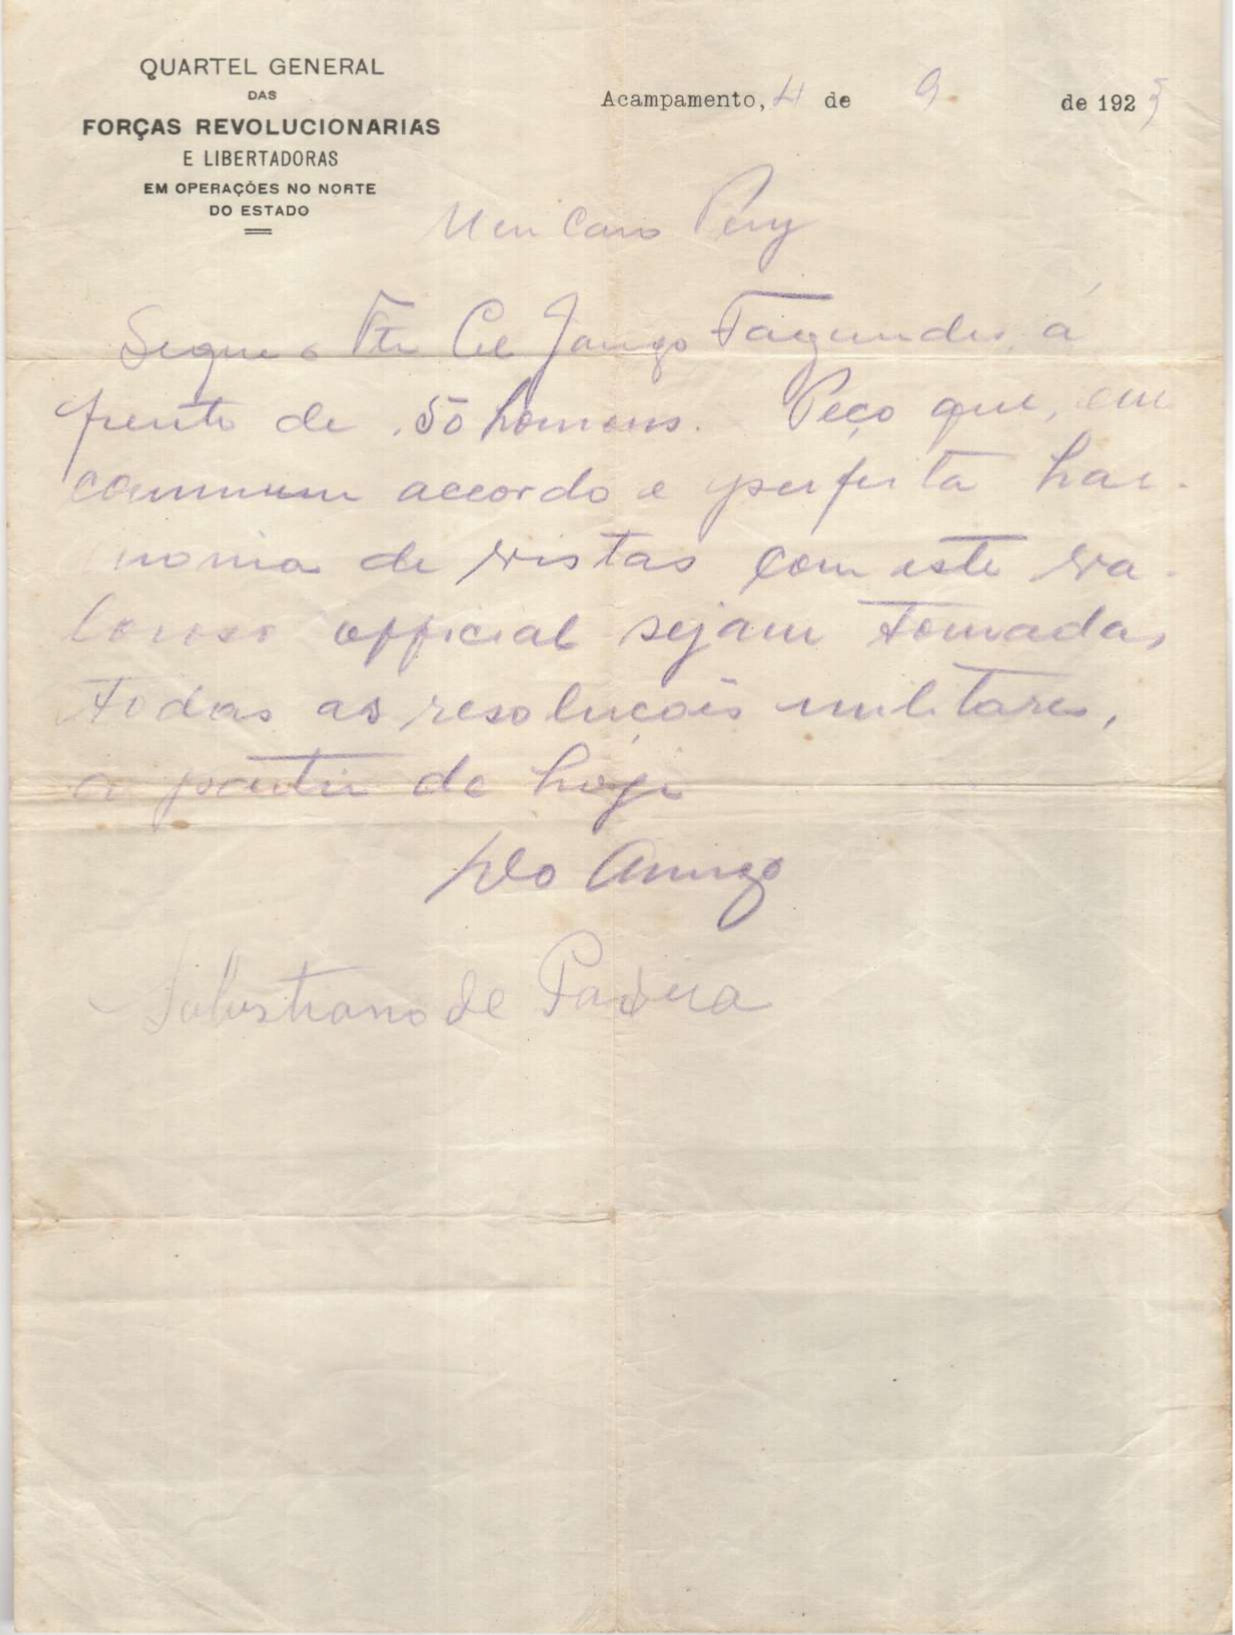 QUARTEL GENERAL
DAS
FORÇAS REVOLUCIONARIAS
E LIBERTADORAS
EM OPERAÇÕES NO NORTE
DO ESTADO
Acampamento, 4 de 9 de 1923
Meu Caro Pery
Segue o Cel Jango Fagundes, á
frente de 50 homens. Peço que, em
commum accordo e perfeita har-
monia de vistas com este va-
loroso official sejam tomadas
todas as resoluçois militares,
a partir de hoje
Do Amigo
Salustiano de Padua